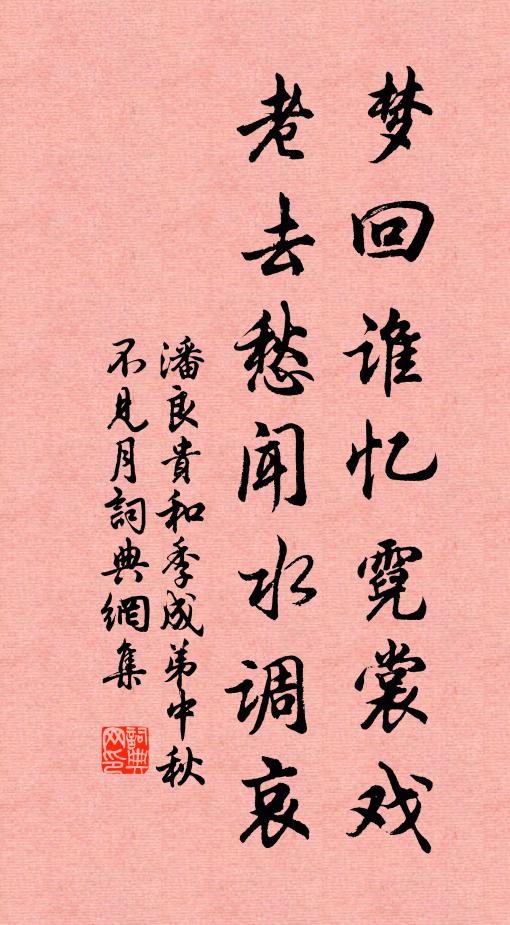 梦回谁忆霓裳戏
老去愁闻水调哀
潘良貴和季成弟中秋
不見月詞典網集
詞典
网印